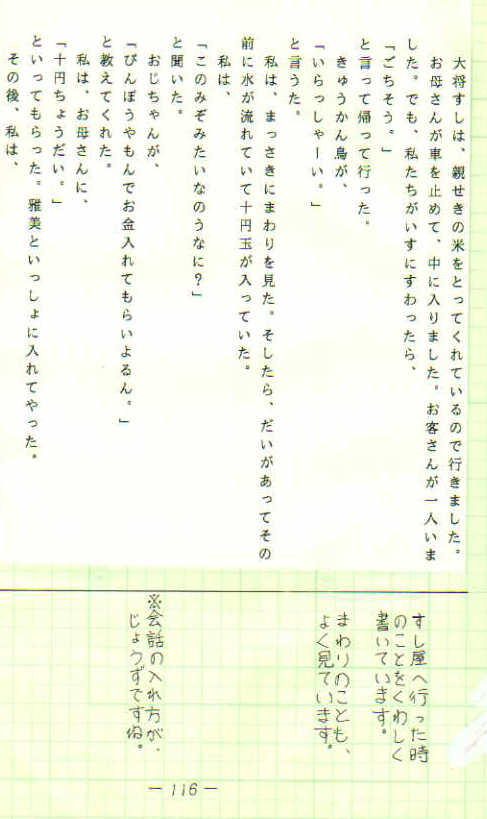 大将すしは、親せきの米をとってくれているので行きました。
お母さんが車を止めて、中に入りました。お客さんが一人いま
した。でも、私たちがいすにすわったら、
「ごちそう。」
と言って帰って行った。
きゅうかん鳥が、
「いらっしゃーい。」
と言うた。
私は、まっさきにまわりを見た。そしたら、だいがあってその
前に水が流れていて十円玉が入っていた。
私は、
「このみぞみたいなのうなに？」
と聞いた。
おじちゃんが、
「びんぼうやもんでお金入れてもらいよるん。」
と教えてくれた。
私は、お母さんに、
「十円ちょうだい。」
といってもらった。雅美といっしょに入れてやった。
その後、私は、
すし屋へ行った時
のことをくわしく
書いています。
まわりのことも、
よく見ています。
※会話の入れ方が、
じょうずですね。
－116－